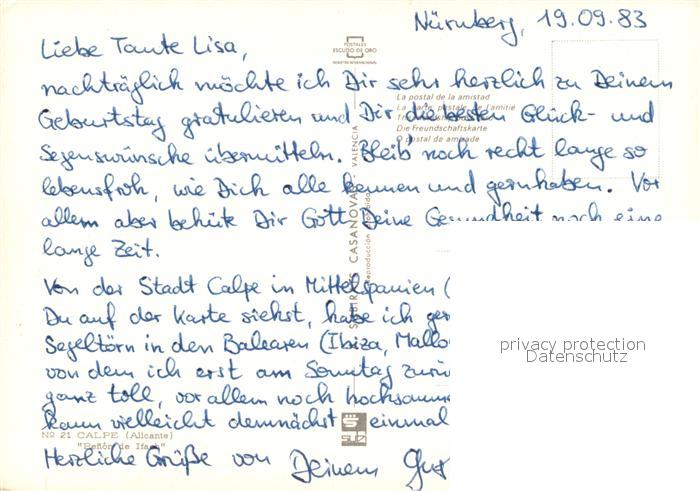 Nürnberg, 19.09.83
Liebe Tante Lisa,
nachträglich möchte ich Dir sehr herzlich zu Deinem
Geburtstag gratulieren und Dir die besten Glück- und
Segenswünsche übermitteln. Bleib noch recht lange so
lebensfroh, wie Dich alle kennen und gernhaben. Vor
allem aber behüte Dir Gott Deine Gesundheit noch eine
lange Zeit.
Von der Stadt Calpe in Mittelspanien (
Du auf der Karte siehst, habe ich ger
Segeltörn in den Balearen (Ibiza, Mallo
von dem ich erst am Sonntag zurü
ganz toll, vor allem noch hochsomm
kann vielleicht demnächst einmal
Herzliche Grüße von Deinem
POSTALES
ESCUDO DE ORO
La postal de la amistad
La carte postale de l'amitié
Die Freundschaftskarte
O postal de amizade
SUBIRATS CASANOVAS - VALENCIA
Nº 21 CALPE (Alicante)
"Peñón de Ifach"
privacy protection
Datenschutz